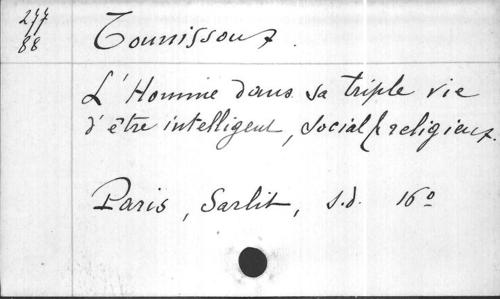 277
88
Tounissoux.
L'Homme dans sa triple vie
d'être intelligent, social & religieux.
Paris, Sarlit, s.d. 16º